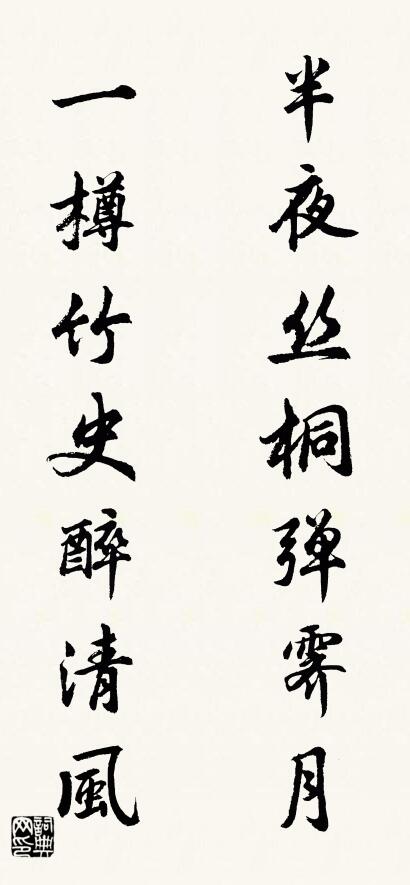 半夜丝桐弹霁月
一樽竹史醉清風
詞典網印